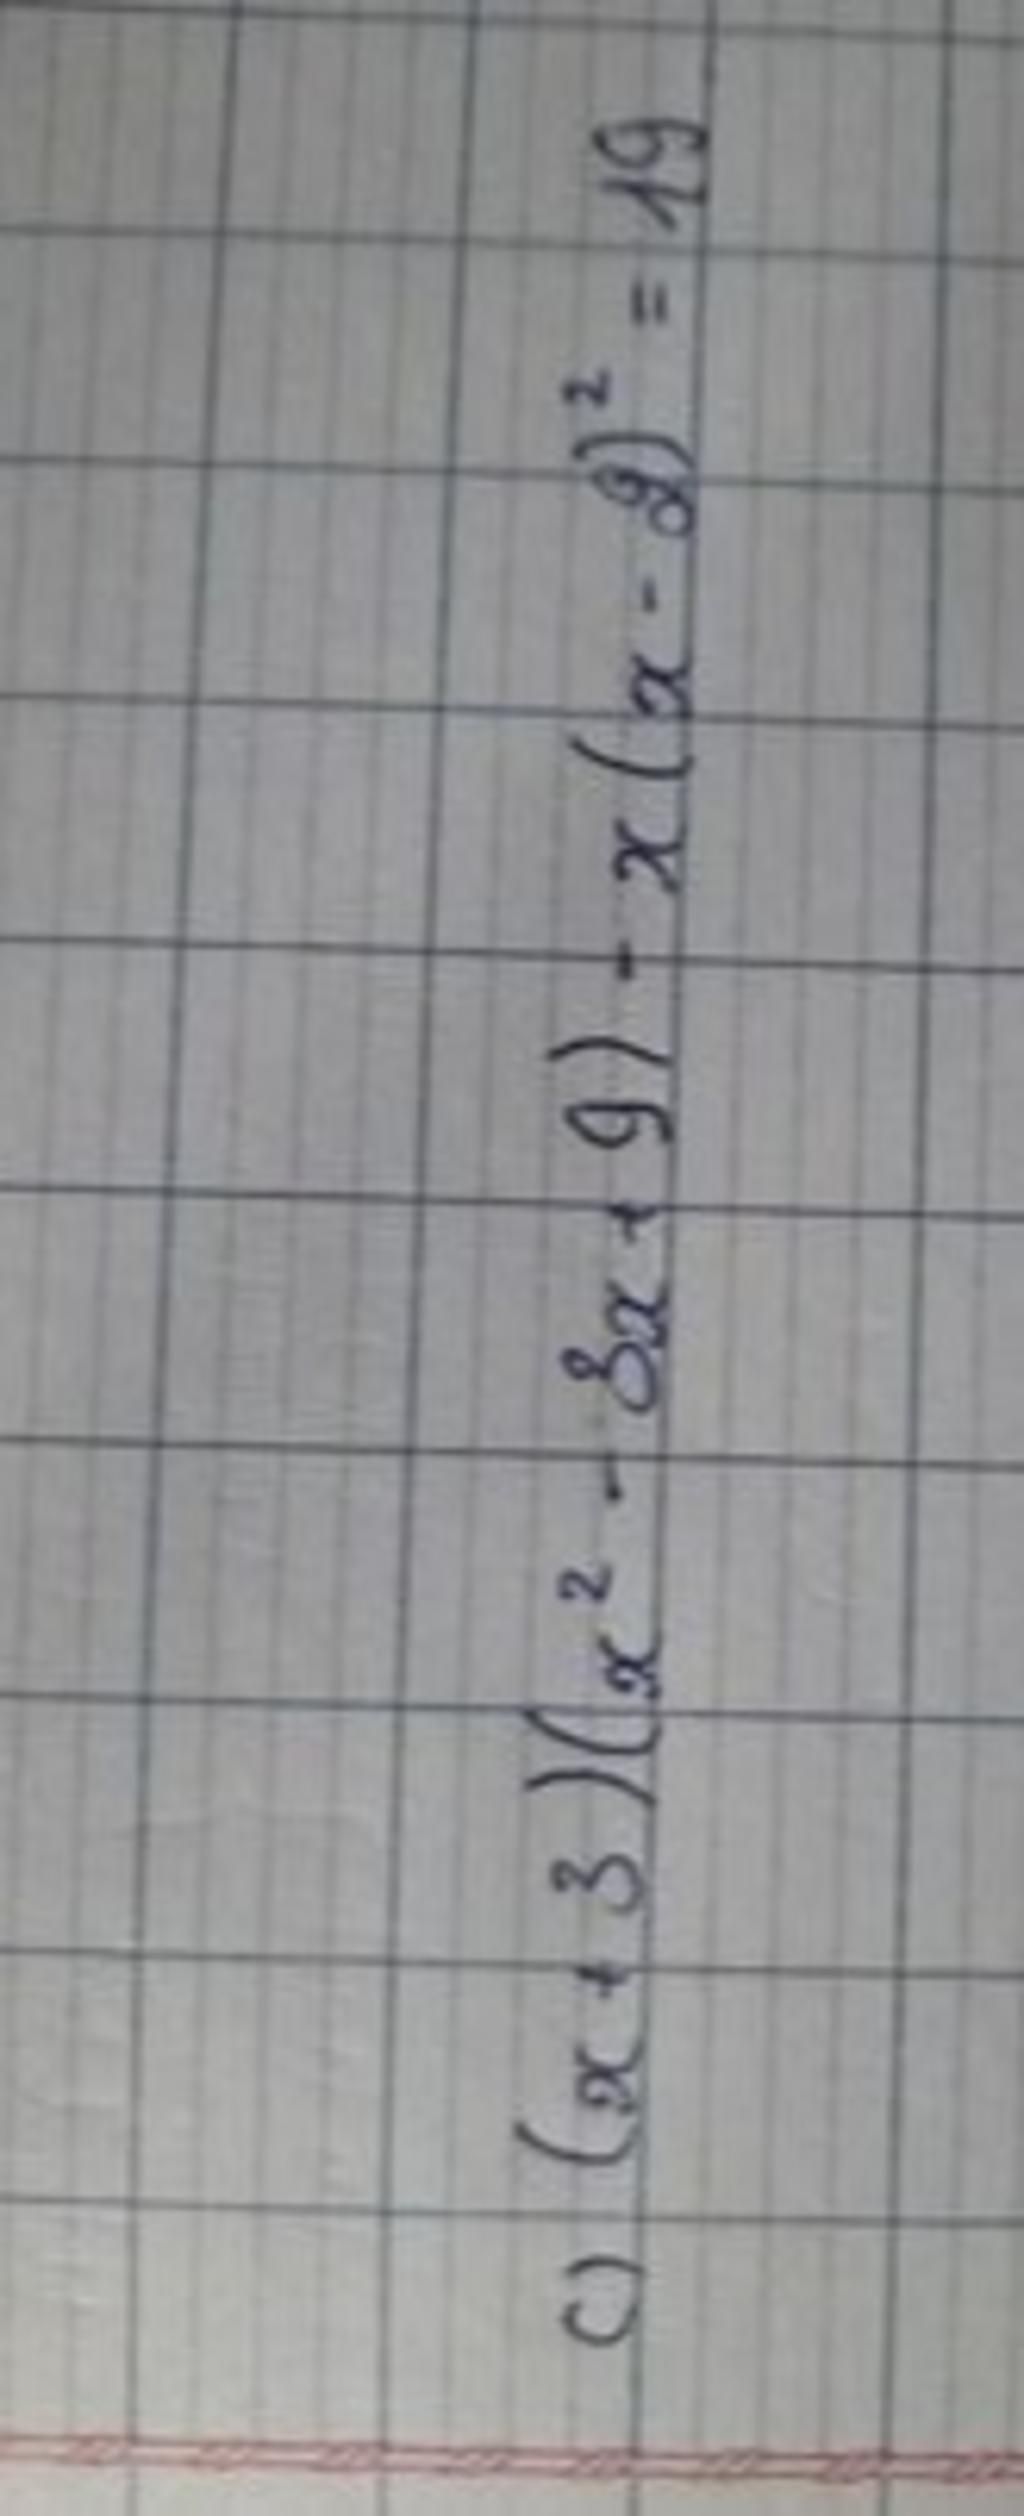 c) (x + 3)(x² - 3x + 9) - x(x - 2)² = 19